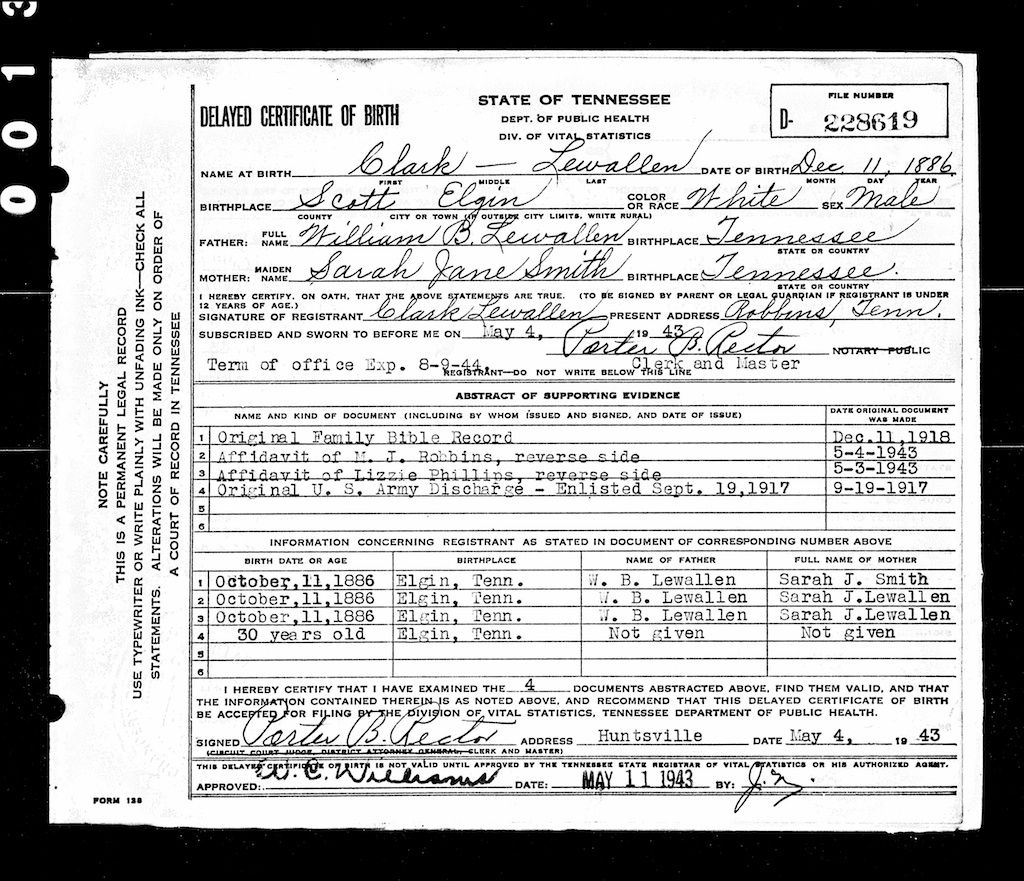 0013
STATE OF TENNESSEE
DEPT. OF PUBLIC HEALTH
DIV. OF VITAL STATISTICS
DELAYED CERTIFICATE OF BIRTH
FILE NUMBER
D- 228619
NAME AT BIRTH Clark — Lewallen DATE OF BIRTH Dec 11, 1886
FIRST MIDDLE LAST MONTH DAY YEAR
BIRTHPLACE Scott Elgin COLOR OR RACE White SEX Male
COUNTY CITY OR TOWN (IF OUTSIDE CITY LIMITS, WRITE RURAL)
FATHER: FULL NAME William B. Lewallen BIRTHPLACE Tennessee
STATE OR COUNTRY
MOTHER: MAIDEN NAME Sarah Jane Smith BIRTHPLACE Tennessee.
STATE OR COUNTRY
I HEREBY CERTIFY, ON OATH, THAT THE ABOVE STATEMENTS ARE TRUE. (TO BE SIGNED BY PARENT OR LEGAL GUARDIAN IF REGISTRANT IS UNDER
12 YEARS OF AGE.)
SIGNATURE OF REGISTRANT Clark Lewallen PRESENT ADDRESS Robbins, Tenn.
SUBSCRIBED AND SWORN TO BEFORE ME ON May 4, 1943
Porter B. Rector NOTARY PUBLIC
Term of office Exp. 8-9-44. Clerk and Master
REGISTRANT—DO NOT WRITE BELOW THIS LINE
ABSTRACT OF SUPPORTING EVIDENCE
NAME AND KIND OF DOCUMENT (INCLUDING BY WHOM ISSUED AND SIGNED, AND DATE OF ISSUE) DATE ORIGINAL DOCUMENT WAS MADE
1 Original Family Bible Record Dec.11,1918
2 Affidavit of M. J. Robbins, reverse side 5-4-1943
3 Affidavit of Lizzie Phillips, reverse side 5-3-1943
4 Original U. S. Army Discharge - Enlisted Sept. 19,1917 9-19-1917
5
6
INFORMATION CONCERNING REGISTRANT AS STATED IN DOCUMENT OF CORRESPONDING NUMBER ABOVE
BIRTH DATE OR AGE BIRTHPLACE NAME OF FATHER FULL NAME OF MOTHER
1 October,11,1886 Elgin, Tenn. W. B. Lewallen Sarah J. Smith
2 October,11,1886 Elgin, Tenn. W. B. Lewallen Sarah J.Lewallen
3 October,11,1886 Elgin, Tenn. W. B. Lewallen Sarah J.Lewallen
4 30 years old Elgin, Tenn. Not given Not given
5
6
I HEREBY CERTIFY THAT I HAVE EXAMINED THE 4 DOCUMENTS ABSTRACTED ABOVE, FIND THEM VALID, AND THAT
THE INFORMATION CONTAINED THEREIN IS AS NOTED ABOVE, AND RECOMMEND THAT THIS DELAYED CERTIFICATE OF BIRTH
BE ACCEPTED FOR FILING BY THE DIVISION OF VITAL STATISTICS, TENNESSEE DEPARTMENT OF PUBLIC HEALTH.
SIGNED Porter B. Rector ADDRESS Huntsville DATE May 4, 1943
(CIRCUIT COURT JUDGE, DISTRICT ATTORNEY GENERAL, CLERK AND MASTER)
THIS DELAYED CERTIFICATE OF BIRTH IS NOT VALID UNTIL APPROVED BY THE TENNESSEE STATE REGISTRAR OF VITAL STATISTICS OR HIS AUTHORIZED AGENT.
APPROVED: W. C. Williams DATE: MAY 11 1943 BY:
FORM 138
NOTE CAREFULLY
THIS IS A PERMANENT LEGAL RECORD
USE TYPEWRITER OR WRITE PLAINLY WITH UNFADING INK—CHECK ALL
STATEMENTS. ALTERATIONS WILL BE MADE ONLY ON ORDER OF
A COURT OF RECORD IN TENNESSEE